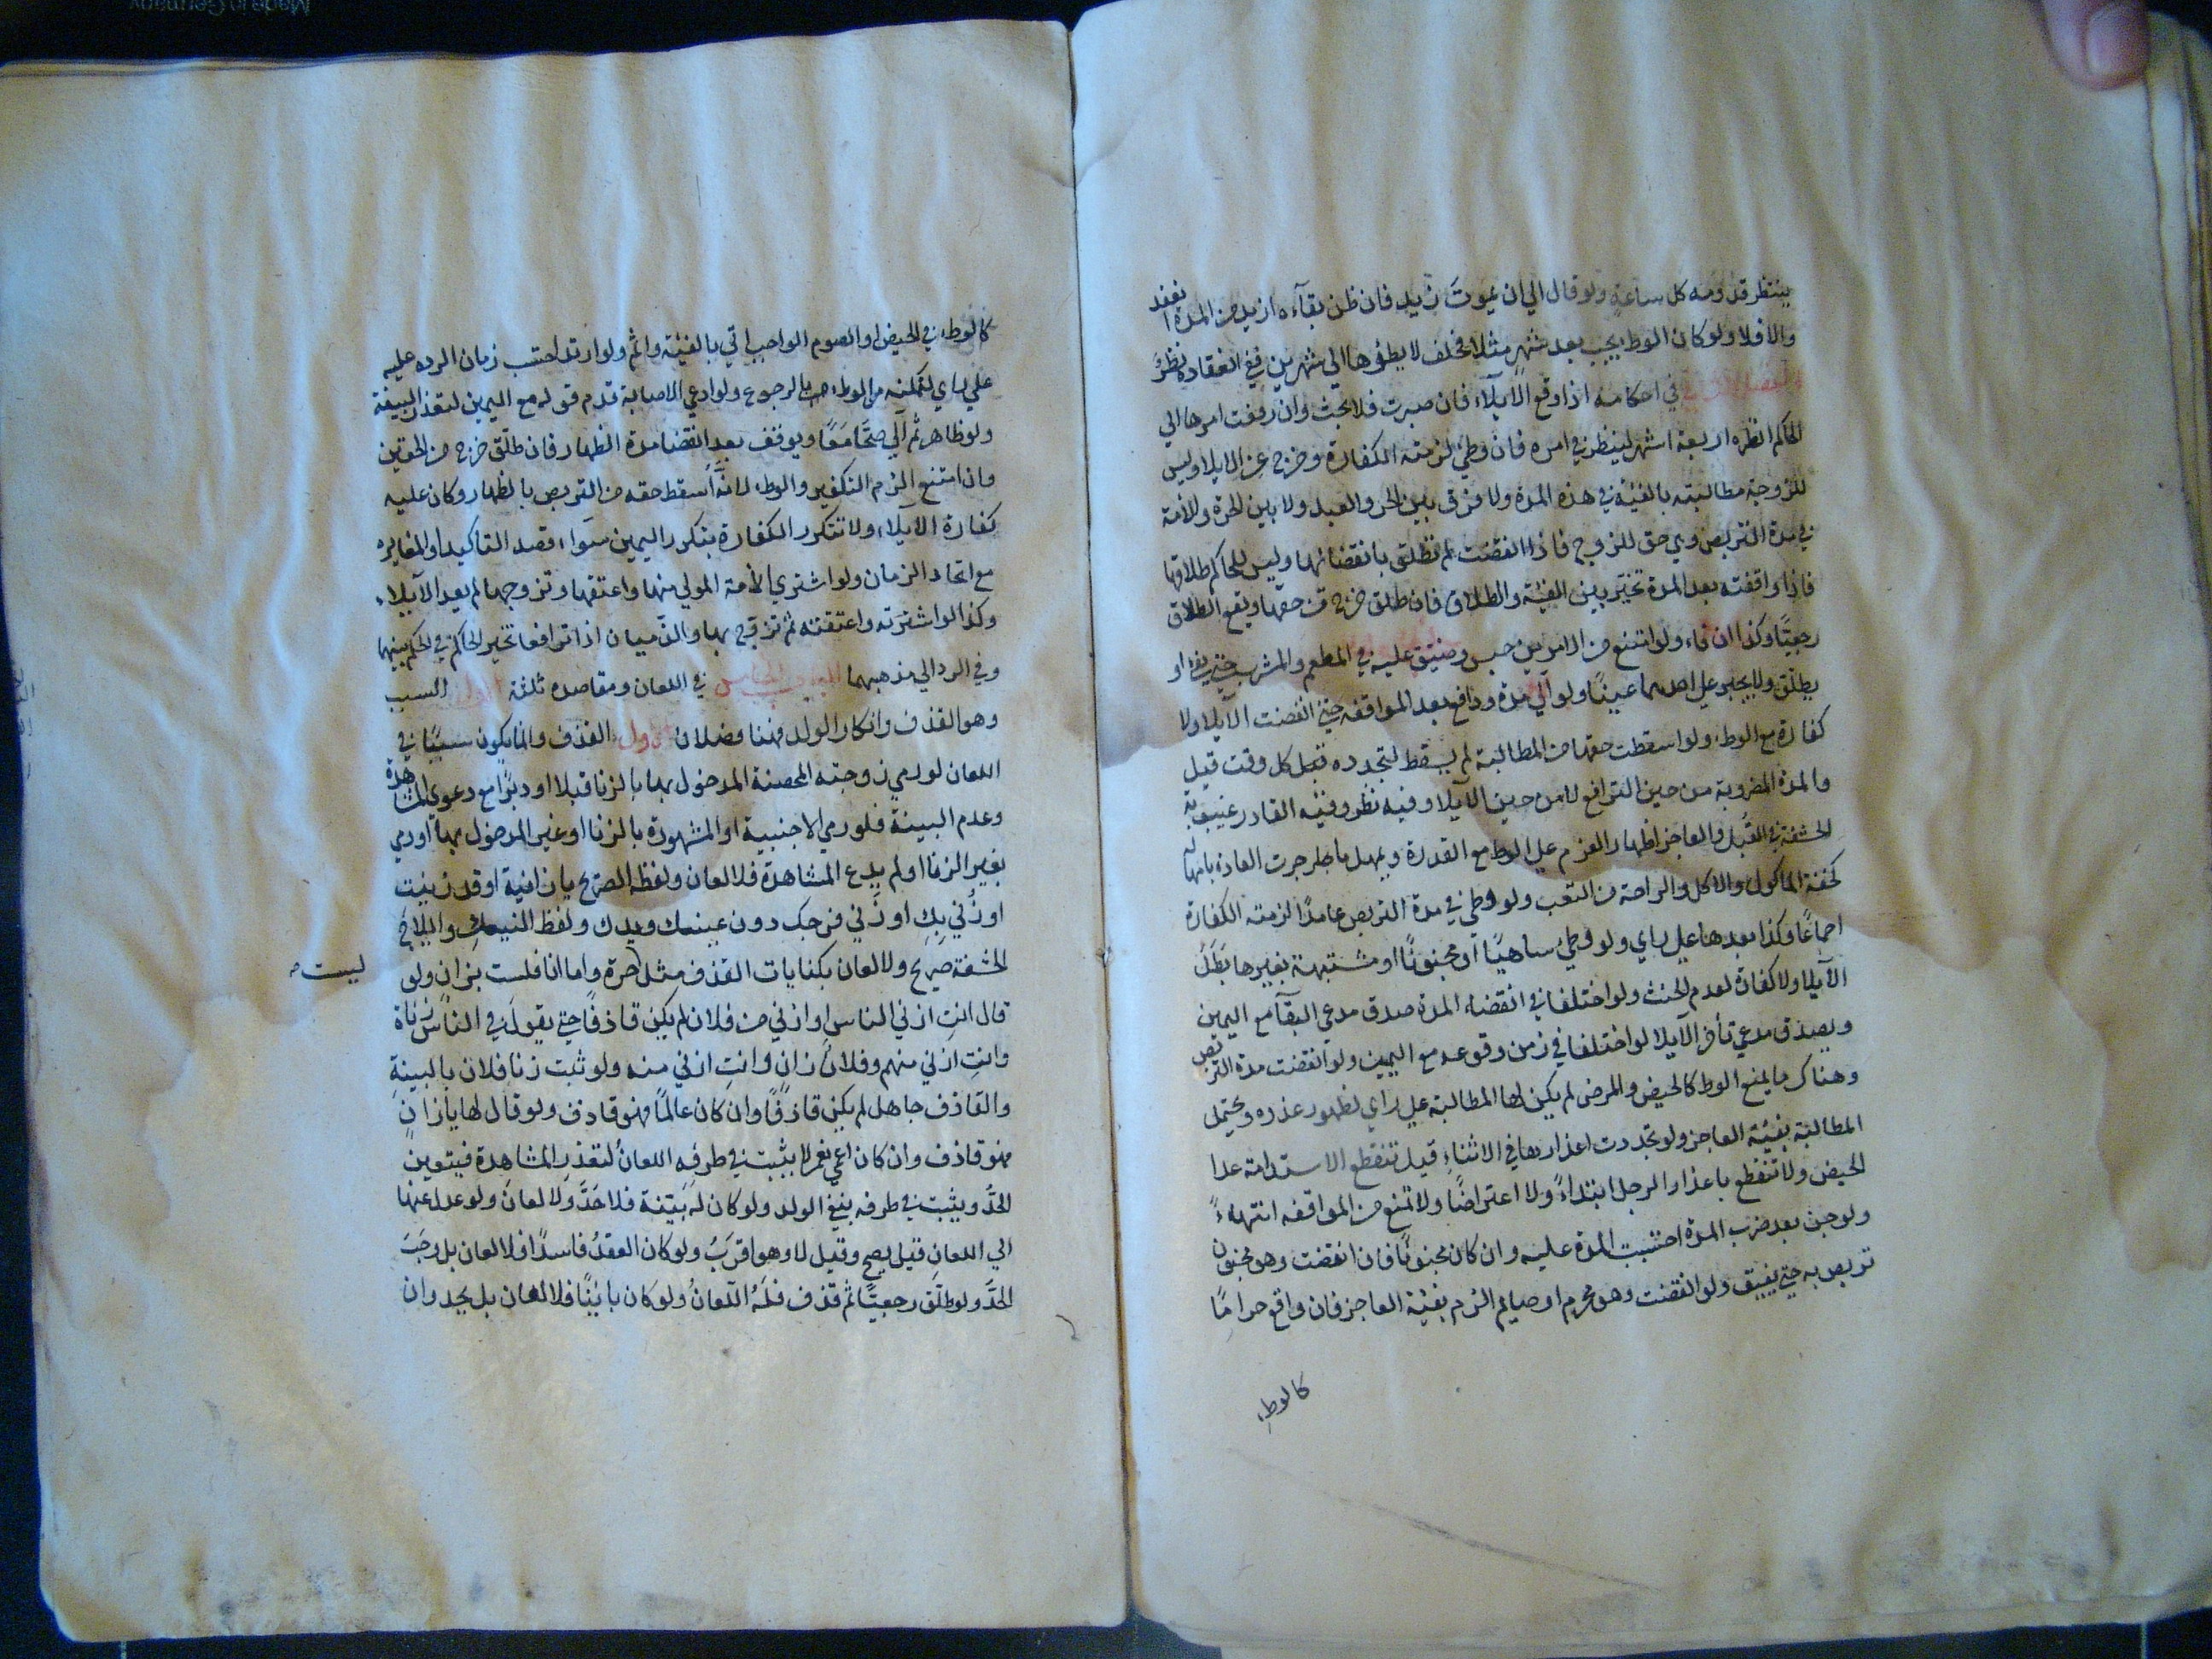 ينتظر قدومه كل ساعة ولو قال الي ان يموت زيد فان ظن بقآءه ازيد من المدة انعقد
والا فلا ولو كان الوطء يجب بعد شهر مثلا فحلف لا يطؤها الي شهرين ففي انعقاده نظر
في احكامه اذا وقع الايلاء فان صبرت فلا بحث وان رفعت امرها الي
الحاكم انظره اربعة اشهر لينظر في امره فان وطئ لزمته الكفارة وخرج عن الايلا وليس
للزوجة مطالبته بالفئة في هذه المدة ولا فرق بين الحر والعبد ولا بين الحرة والامة
في مدة التربص وهي حق للزوج فاذا انقضت لم تطلق بانقضائها وليس للحاكم طلاقها
فاذا واقفته بعد المدة تخير بين الفئة والطلاق فان طلق خرج من حقها ويقع الطلاق
رجعيًا وكذا ان فاء ولو امتنع من الامرين حبس وضيق عليه في المطعم والمشرب حتي يفئ او
يطلق ولا يجبر علي احدهما عينًا ولو آلي مدة ودافع بعد المواقفة حتي انقضت الايلا ولا
كفارة مع الوطء ولو اسقطت حقها من المطالبة لم يسقط لتجدده قبل كل وقت قيل
والمدة المضروبة من حين الترافع لا من حين الايلا وفيه نظر وفئة القادر غيبوبة
الحشفة في القبل والعاجز اظهار العزم علي الوطء مع القدرة ويمهل ما جرت العادة بامهاله
كخفة الماكول والاكل والراحة من التعب ولو وطئ في مدة التربص عامدًا لزمته الكفارة
اجماعًا وكذا بعدها علي راي ولو وطئ ساهيًا او مجنونًا او مشتبهة بغيرها بطل
الايلا ولا كفارة لعدم الحنث ولو اختلفا في انقضاء المدة صدق مدعي البقآ مع اليمين
ويصدق مدعي تأخر الآيلا لو اختلفا في زمن وقوعه مع اليمين ولو انقضت مدة التربص
وهناك ما يمنع الوطء كالحيض والمرض لم يكن لها المطالبة علي راي لظهور عذره ويحتمل
المطالبة بفئة العاجز ولو تجددت اعذارها في الاثناء قيل تنقطع الاستدامة عدا
الحيض ولا تنقطع باعذار الرجل ابتداءً ولا اعتراضًا ولا تمنع من المواقفه انتهاءً
ولو جن بعد ضرب المدة احتسبت المدة عليه وان كان مجنونًا فان انقضت وهو مجنون
تربص به حتي يفيق ولو انقضت وهو محرم او صايم الزم بفئة العاجز فان واقع حرامًا
كالوطء
كالوطء في الحيض او الصوم الواجب اتي بالفئة واثم ولو ارتد احتسب زمان الرده عليه
علي راي لتمكنه من الوطء بالرجوع ولو ادعي الاصابة قدم قوله مع اليمين لتعذر البينة
ولو ظاهر ثم آلي صحا معًا ويوقف بعد انقضا مدة الظهار فان طلق خرج من الحقين
وان امتنع الزم التكفير والوطء لانه اسقط حقه من التربص بالظهار وكان عليه
كفارة الايلاء ولا تتكرر الكفارة بتكرر اليمين سواء قصد التاكيد او المغايره
مع اتحاد الزمان ولو اشتري الامة المولي منها واعتقها وتزوجها لم يعد الآيلاء
وكذا لو اشترته واعتقته ثم تزوج بها والذميان اذا ترافعا تخير الحاكم في الحكم بينهما
وفي الرد الي مذهبهما الباب الخامس في اللعان ومقاصده ثلثة الاول السبب
وهو القذف وانكار الولد فهنا فصلان الاول القذف وانما يكون سببًا في
اللعان لو رمي زوجته المحصنة المدخول بها بالزنا قبلا او دبرًا مع دعوي المشاهدة
وعدم البينة فلو رمي الاجنبية او المشهورة بالزنا او غير المدخول بها او رمي
بغير الزنا او لم يدع المشاهدة فلا لعان ولفظه الصريح يا زانية او قد زنيت
او زني بك او زني فرجك دون عينك ويدك ولفظ النيك وايلاج
الحشفة صريح ولا لعان بكنايات القذف مثل حرة واما انا فلست بزان ولو
ليست
قال انت ازني الناس او ازني من فلان لم يكن قاذفًا حتي يقول في الناس زناة
وانت ازني منهم وفلان زان وانت ازني منه ولو ثبت زنا فلان بالبينة
والقاذف جاهل لم يكن قاذفًا وان كان عالمًا فهو قاذف ولو قال لها يا زان
فهو قاذف وان كان اعمي نعم لا يثبت في طرفه اللعان لتعذر المشاهدة فيتعين
الحدُّ ويثبت في طرفه بنفي الولد ولو كان له بينة فلا حدَّ ولا لعان ولو عدل عنها
الي اللعان قيل يصح وقيل لا وهو اقرب ولو كان العقد فاسدًا فلا لعان بل وجب
الحدَّ ولو طلق رجعيًا ثم قذف فله اللعان ولو كان باينًا فلا لعان بل يحد وان